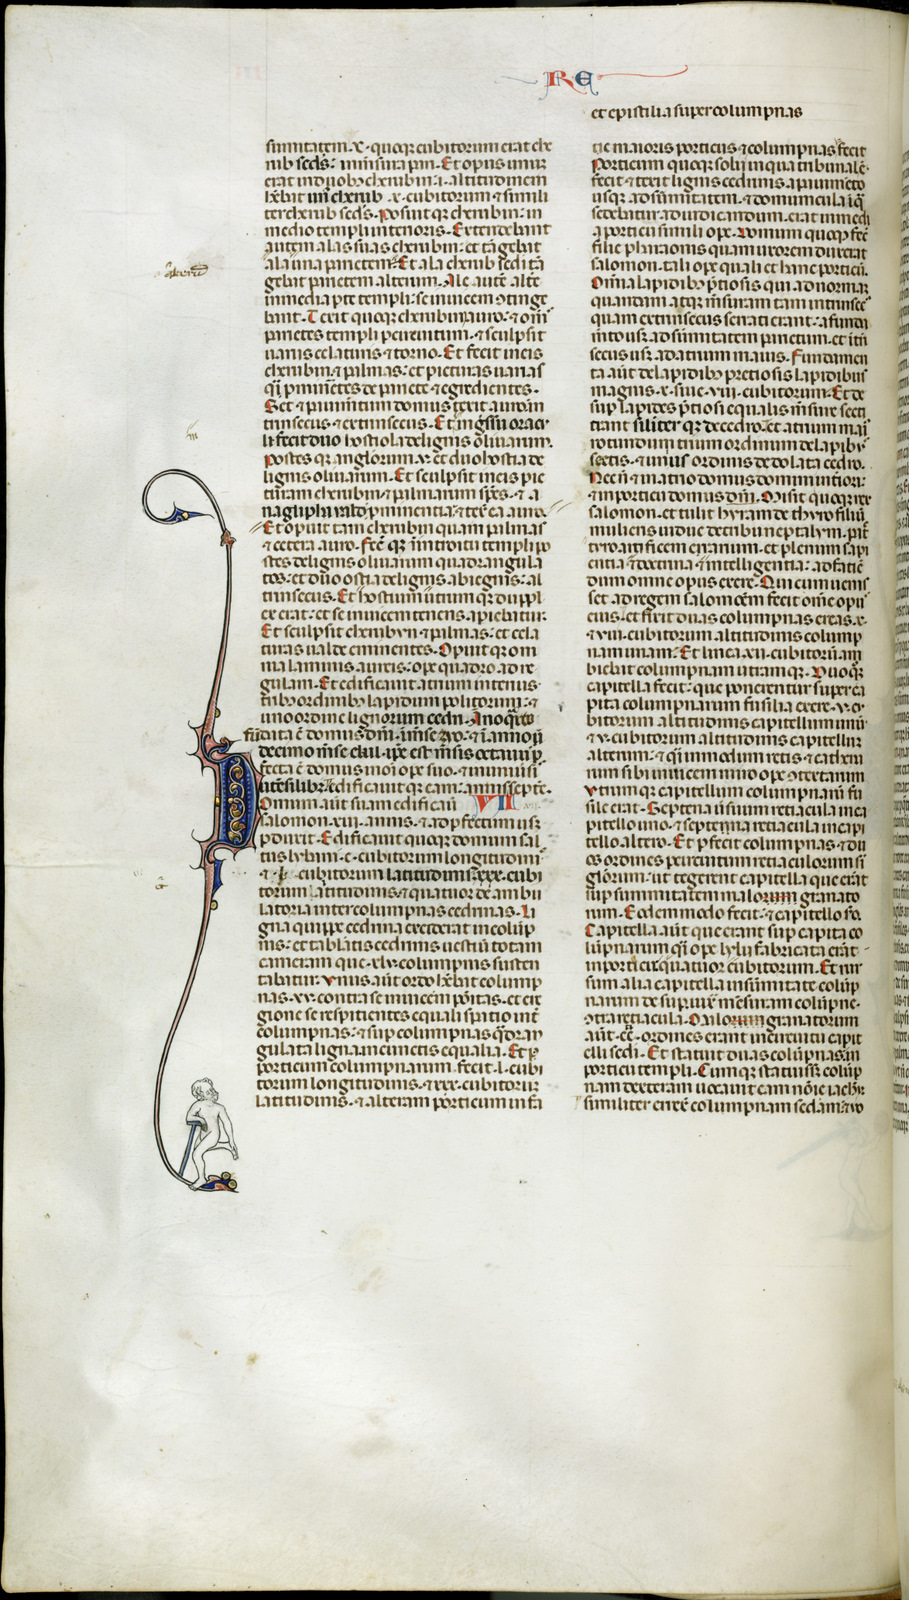 RE
et epistilia super columpnas
sumitatem · x · quoque cubitorum erat che
rub secds : in mensura pari · Et opus unum
erat in duobus cherubin · i · altitudinem
habebat unus cherub · x · cubitorum & simili
ter cherub secds · Posuit que cherubin : in
medio templi interioris · Extendebant
autem alas suas cherubin : et tangebat
ala una parietem · Et ala cherub secdi tan
gebat parietem alterum · Ale autem altere
in media parte templi : se invicem continge
bant · Texit quoque cherubin auro : & omnes
parietes templi per circuitum · & sculpsit
variis celaturis & torno · Et fecit in eis
cherubin & palmas : et picturas varias
qi prominentes de pariete & egredientes ·
Set & pavimentum domus texit auro in
trinsecus & extrinsecus · Et in ingressu oracu
li fecit duo hostiola de lignis olivarum ·
Postes que anglorum · v · et duo hostia de
lignis olivarum · Et sculpsit in eis pic
turam cherubin & palmarum spes · & a
naglipha valde prominentia & texit ea auro ·
Et operuit tam cherubin quam palmas
& cetera auro · Fecit que in introitu templi po
stes de lignis olivarum quadrangula
tos : et duo ostia de lignis abiegnis : al
trinsecus · Et hostium utrumque dupl
ex erat : et se invicem tenens aperiebatur ·
Et sculpsit cherubyn & palmas : et cela
turas valde eminentes · Operuit que om
nia laminis aureis : ope quadro ad re
gulam · Et edificavit atrium interius ·
tribus ordinibus lapidum politorum : &
uno ordine lignorum cedri · Anno quarto
fundata est domus dni in mense zyo : & in anno un
decimo mense ebul · ipse est mensis octavus per
fecta est domus in oi ope suo · & in universis
utensilibus · Edificavit que eam : annis septem ·
VII
Domum aut suam edificavit
salomon · xiii · annis · & ad perfectum usque
perduxit · Edificavit quoque domum sal
tus lybani · c · cubitorum longitudinis
& · l · cubitorum latitudinis : & xxx · cubi
torum latitudinis & quatuor deambu
latoria inter columpnas cedrinas · Li
gna quippe cedrina exciderat in colump
nis : et tabulatis cedrinis vestivit totam
cameram que · xlv · columpnis susten
tabatur · Unus aut ordo habebat colump
nas · xv · contra se invicem positas · et e re
gione se respicientes equali spatio inter
columpnas : & super columpnas quadran
gulata ligna in cunctis equalia · Et
porticum columpnarum fecit · l · cubi
torum longitudinis · & xxx · cubitorum
latitudinis · & alteram porticum in fa
cie maioris porticus & columpnas fecit
Porticum quoque solii in qua tribunal est
fecit & texit lignis cedrinis a pavimento
usque ad sumitatem · & domuncula in qua
sedebatur ad iudicandum · erat in media
porticu simili ope · Domum quoque fecit
filie pharaonis quam uxorem duxerat
salomon · tali ope quali et hanc porticum ·
Omnia lapidibus preciosis qui ad normam
quandam atque mensuram tam intrinsecus
quam extrinsecus serrati erant : a funda
mento usque ad sumitatem parietum · et intrin
secus usque ad atrium maius · Fundamen
ta aut de lapidibus pretiosis lapidibus
magnis · x · sive · viii · cubitorum · Et de
super lapides preciosi equalis mensure secti
erant similiter que de cedro · et atrium maius
rotundum trium ordinum de lapidibus
sectis · & unius ordinis dedolata cedro ·
Necn & in atrio domus domini interiori :
& in porticu domus dni · Misit quoque rex
salomon · et tulit hyram de thyro filium
mulieris vidue de tribu neptalym · patre
tyro artificem erarium · et plenum sapi
entia & doctrina & intelligentia : ad facien
dum omne opus ex ere · Qui cum venis
set ad regem salomonem fecit omne opus
eius · et finxit duas columpnas ereas · x ·
& viii · cubitorum altitudinis colump
nam unam : Et linea · xii · cubitorum am
biebat columpnam utramque · Duo quoque
capitella fecit : que ponerentur super ca
pita columpnarum fusilia ex ere · v · cu
bitorum altitudinis capitellum unum
& · v · cubitorum altitudinis capitellum
alterum : & qi in modum retis & cathena
rum sibi invicem miro ope contextarum
Utrumque capitellum columpnarum fu
sile erat · Septena versuum retiacula in ca
pitello uno · & septena retiacula in capi
tello altero · Et perfecit columpnas · & du
os ordines per circuitum retiaculorum si
glorum : ut tegerent capitella que erant
super summitatem malorum granato
rum · Eodem modo fecit : & capitello secundo ·
Capitella aut que erant super capita co
lumpnarum qi ope lylii fabricata erant
in porticu : quatuor cubitorum · Et rur
sum alia capitella in summitate colump
narum desuper iuxta mensuram columpne ·
contra retiacula · Malorum granatorum
aut · cc · ordines erant in circuitu capit
elli secdi · Et statuit duas columpnas in
porticu templi · Cumque statuisset columpnam
dexteram vocavit eam nomine iachin ·
similiter erexit columpnam secdam : & vo